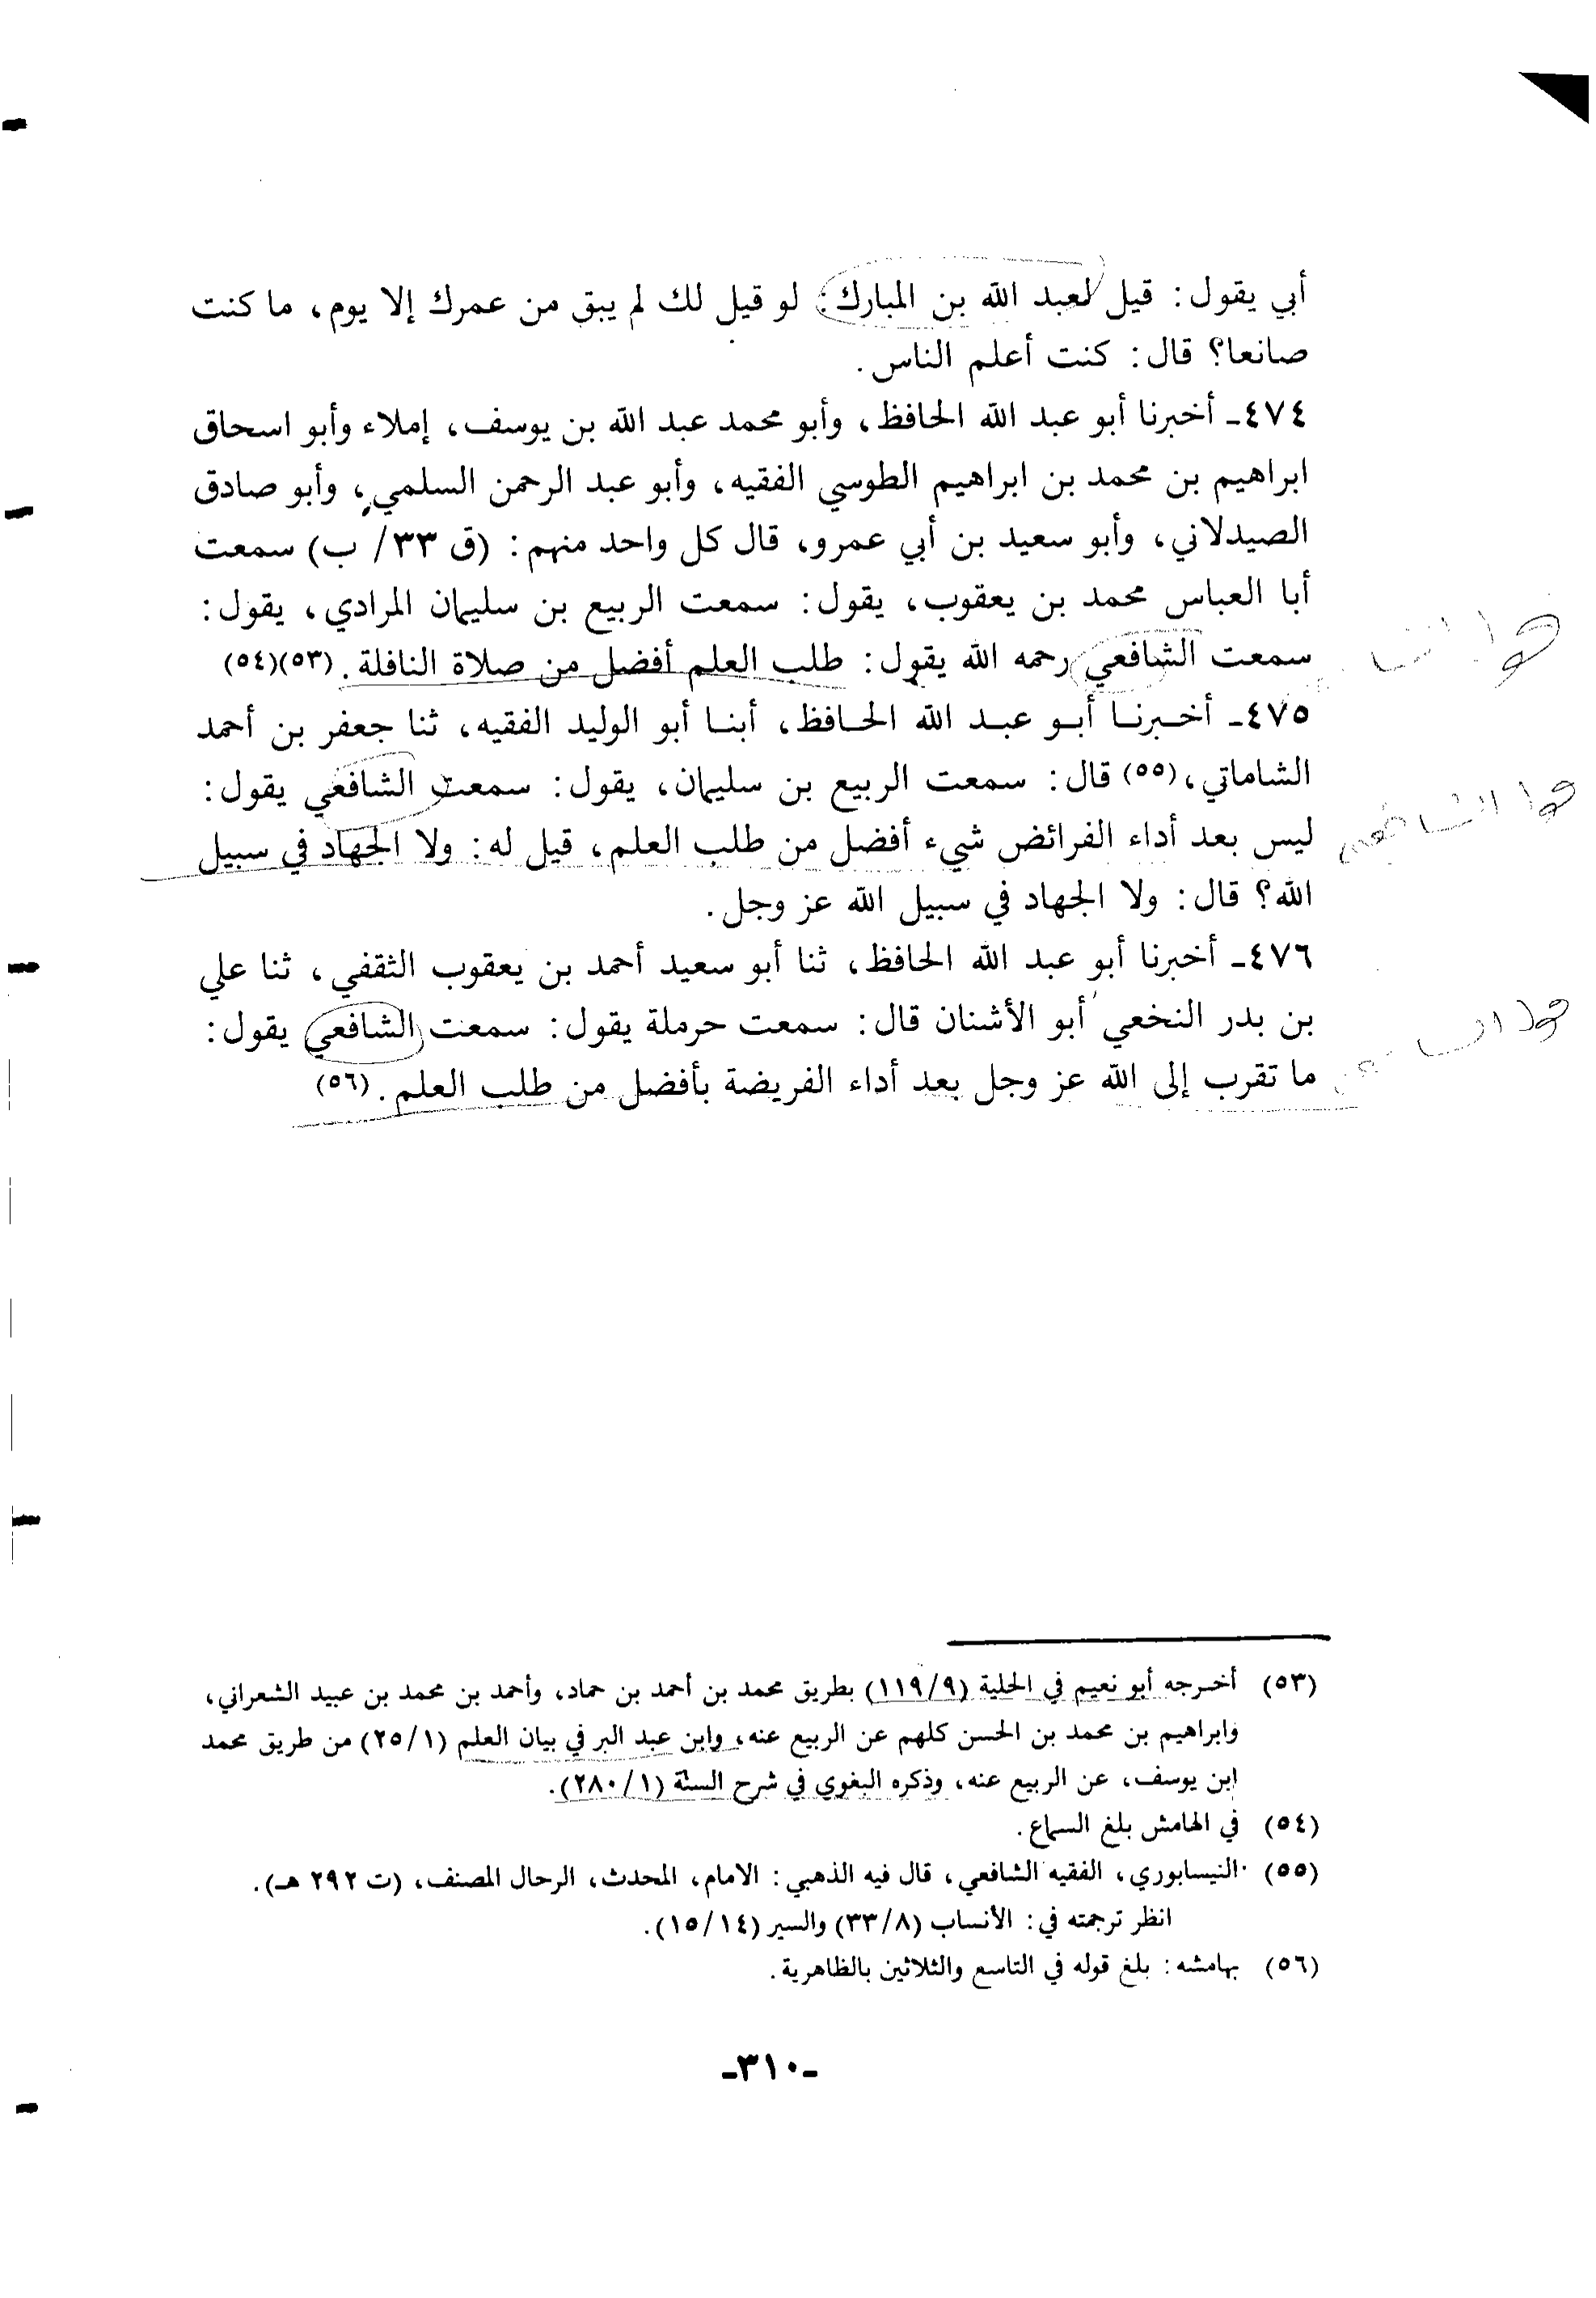 أبي يقول: قيل لعبد الله بن المبارك: لو قيل لك لم يبق من عمرك إلا يوم، ما كنت
صانعا؟ قال: كنت أعلم الناس.
٤٧٤ـ أخبرنا أبو عبد الله الحافظ، وأبو محمد عبد الله بن يوسف، إملاء وأبو اسحاق
ابراهيم بن محمد بن ابراهيم الطوسي الفقيه، وأبو عبد الرحمن السلمي، وأبو صادق
الصيدلاني، وأبو سعيد بن أبي عمرو، قال كل واحد منهم: (ق ٣٣/ ب) سمعت
أبا العباس محمد بن يعقوب، يقول: سمعت الربيع بن سليمان المرادي، يقول:
سمعت الشافعي رحمه الله يقول: طلب العلم أفضل من صلاة النافلة. (٥٣)(٥٤)
٤٧٥ـ أخبرنا أبو عبد الله الحافظ، أبنا أبو الوليد الفقيه، ثنا جعفر بن أحمد
الشاماتي، (٥٥) قال: سمعت الربيع بن سليمان، يقول: سمعت الشافعي يقول:
ليس بعد أداء الفرائض شيء أفضل من طلب العلم، قيل له: ولا الجهاد في سبيل
الله؟ قال: ولا الجهاد في سبيل الله عز وجل.
٤٧٦ـ أخبرنا أبو عبد الله الحافظ، ثنا أبو سعيد أحمد بن يعقوب الثقفي، ثنا علي
بن بدر النخعي أبو الأشنان قال: سمعت حرملة يقول: سمعت الشافعي يقول:
ما تقرب إلى الله عز وجل بعد أداء الفريضة بأفضل من طلب العلم. (٥٦)
(٥٣) أخرجه أبو نعيم في الحلية (١١٩/٩) بطريق محمد بن أحمد بن حماد، وأحمد بن محمد بن عبيد الشعراني،
وابراهيم بن محمد بن الحسن كلهم عن الربيع عنه، وابن عبد البر في بيان العلم (٢٥/١) من طريق محمد
ابن يوسف، عن الربيع عنه، وذكره البغوي في شرح السنة (٢٨٠/١).
(٥٤) في الهامش بلغ السماع.
(٥٥) النيسابوري، الفقيه الشافعي، قال فيه الذهبي: الامام، المحدث، الرحال المصنف، (ت ٢٩٢ هـ).
انظر ترجمته في: الأنساب (٣٣/٨) والسير (١٥/١٤).
(٥٦) بهامشه: بلغ قوله في التاسع والثلاثين بالظاهرية.
ـ٣١٠ـ